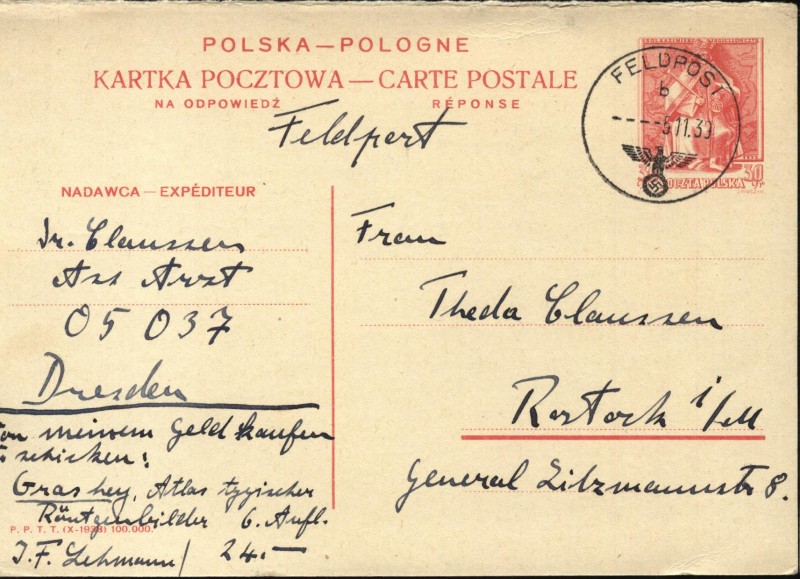 POLSKA—POLOGNE
KARTKA POCZTOWA—CARTE POSTALE
NA ODPOWIEDŹ RÉPONSE
Feldpost
FELDPOST
b
5.11.39
POCZTA POLSKA 30 gr
NADAWCA—EXPÉDITEUR
Dr. Claussen
Ass Arzt
05 037
Dresden
von meinem Geld kaufen
schicken:
Grashey, Atlas typischer
Röntgenbilder 6. Aufl.
P. P. T. T. (X-1938) 100.000.
J. F. Lehmann / 24.—
Frau
Theda Claussen
Rostock i/M
General Litzmannstr 8.